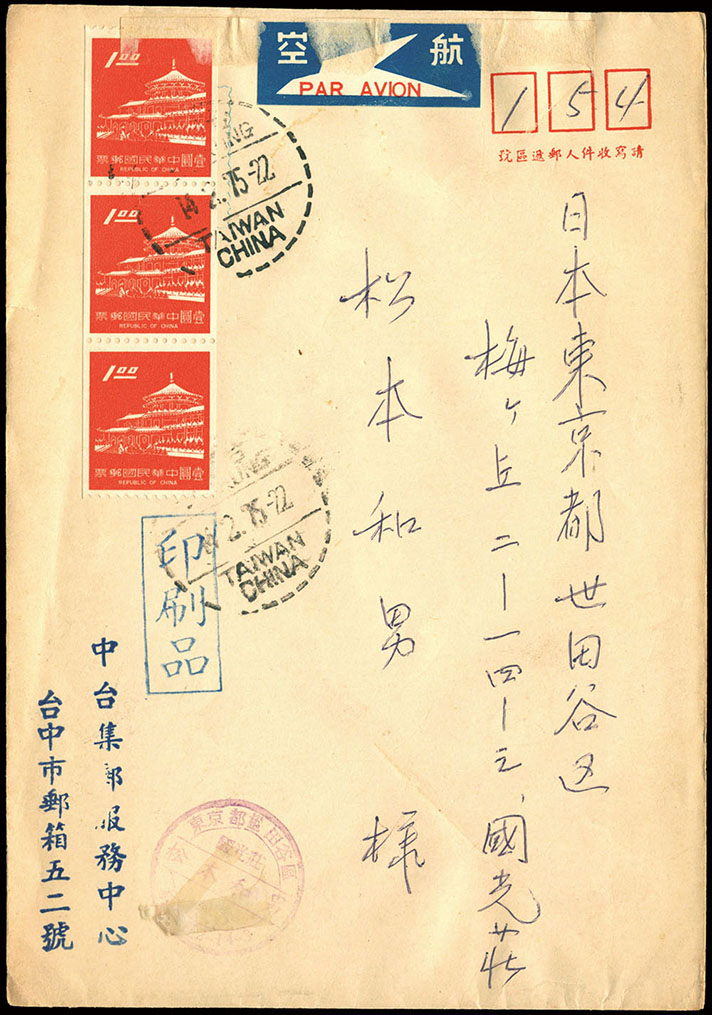 空 航
PAR AVION
154
請寫收件人郵遞區號
日本東京都世田谷区
梅ヶ丘二-一四-三、國光荘
松本和男様
1.00
壹圓中華民國郵票
REPUBLIC OF CHINA
1.00
壹圓中華民國郵票
REPUBLIC OF CHINA
1.00
壹圓中華民國郵票
REPUBLIC OF CHINA
2.75-22
TAIWAN
CHINA
2.75-22
TAIWAN
CHINA
印刷品
中台集郵服務中心
台中市郵箱五二號
東京都 田谷區